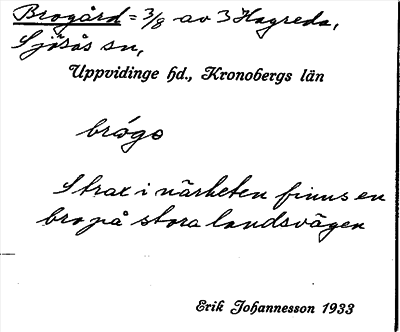 Brogård = 3/8 av 3 Hagreda,
Sjösås sn,
Uppvidinge hd., Kronobergs län
brógo
Strax i närheten finns en
bro på stora landsvägen
Erik Johannesson 1933